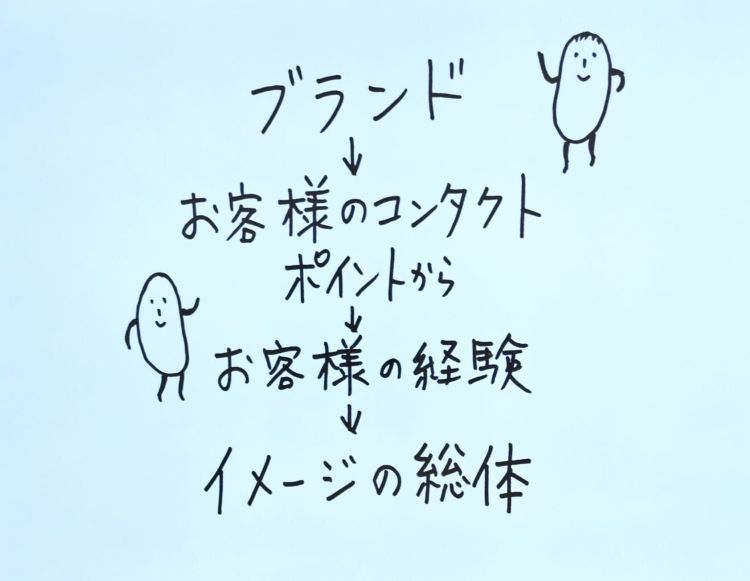 ブランド
↓
お客様のコンタクト
ポイントから
↓
お客様の経験
↓
イメージの総体